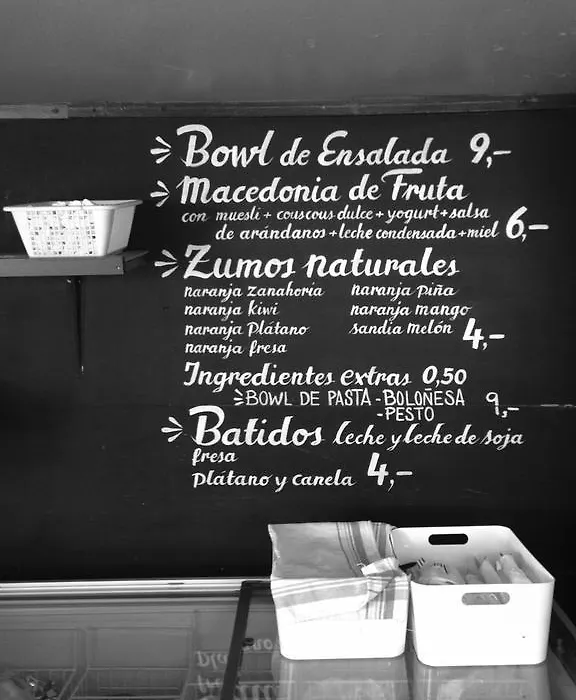 Bowl de Ensalada 9,-
Macedonia de Fruta
con muesli + couscous dulce + yogurt + salsa
de arándanos + leche condensada + miel 6,-
Zumos naturales
naranja zanahoria naranja piña
naranja kiwi naranja mango
naranja Plátano sandia melón 4,-
naranja fresa
Ingredientes extras 0,50
BOWL DE PASTA - BOLOÑESA 9,-
- PESTO
Batidos leche y leche de soja
fresa
Plátano y canela 4,-